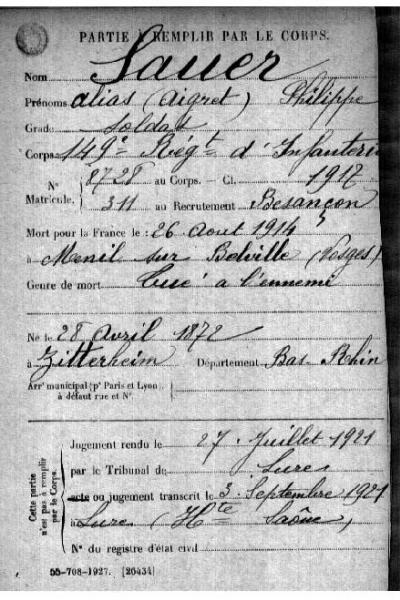 PARTIE À REMPLIR PAR LE CORPS.
Nom Sauer
Prénoms alias (Aigret) Philippe
Grade soldat
Corps 149e Régt d'Infanterie
N° Matricule. { 8728 au Corps. — Cl. 1917
311 au Recrutement Besançon
Mort pour la France le : 26 Aout 1914
à Menil sur Belville (Vosges)
Genre de mort Tué à l'ennemi
Né le 28 Avril 1872
à Zitterheim Département Bas-Rhin
Arrt municipal (pr Paris et Lyon),
à défaut rue et N°.
Cette partie n'est pas à remplir par le Corps.
Jugement rendu le 27 Juillet 1921
par le Tribunal de Lure
acte ou jugement transcrit le 3 Septembre 1921
à Lure (Hte Saône)
N° du registre d'état civil
55-708-1927. [26434]